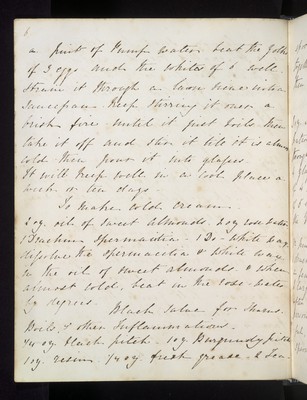 6
a pint of Pump water beat the Yolks
of 3 eggs and the whites of 6 well
Strain it through a lawn sieve into a
Saucepan. Keep stirring it over a
brisk fire until it just boils. then
take it off and stir it till it is almost
cold then pour it into glasses.
It will keep well in a cool place a
week or ten days.
To make Cold Cream.
2 oz. oil of sweet almonds. 2 oz rose water
1 Drachm Spermacetia - 1 Do - white wax
dissolve the Spermacetia & white wax
in the oil of sweet almonds & when
almost cold, beat in the rose-water
by degrees
Black Salve for Burns.
Boils, & other Inflammations.
1/4 oz. black pitch. 1 oz Burgundy pitch
1 oz. resin 1/4 oz. fresh grease. 2 Tea-